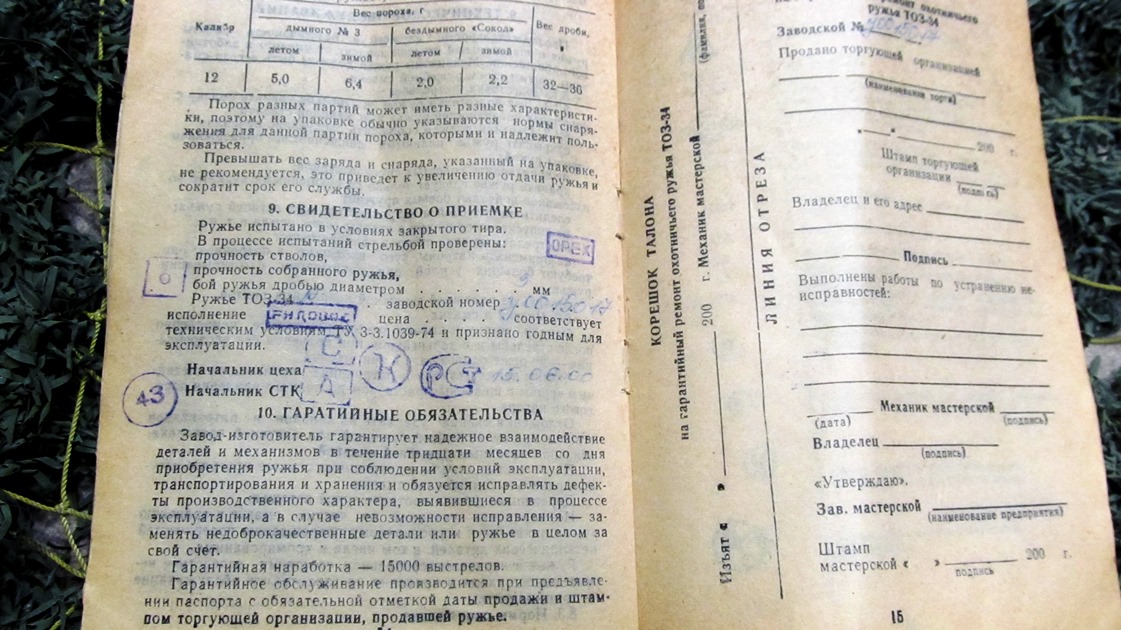 Калибр
Вес пороха, г
Вес дроби,
дымного № 3
бездымного «Сокол»
летом
зимой
летом
зимой
12
5,0
6,4
2,0
2,2
32—36
Порох разных партий может иметь разные характеристи-
ки, поэтому на упаковке обычно указываются нормы снаря-
жения для данной партии пороха, которыми и надлежит поль-
зоваться.
Превышать вес заряда и снаряда, указанный на упаковке,
не рекомендуется, это приведет к увеличению отдачи ружья и
сократит срок его службы.
9. СВИДЕТЕЛЬСТВО О ПРИЕМКЕ
Ружье испытано в условиях закрытого тира.
В процессе испытаний стрельбой проверены:
прочность стволов,
ОРЕХ
прочность собранного ружья,
бой ружья дробью диаметром . . . . . . . 3 мм
Ружье ТОЗ-34 . заводской номер
исполнение РЯДОВОЕ цена . . . . соответствует
техническим условиям ТУ 3-3.1039-74 и признано годным для
эксплуатации.
Начальник цеха С К РСТ 15.06.00
43 Начальник СТК А
10. ГАРАТИЙНЫЕ ОБЯЗАТЕЛЬСТВА
Завод-изготовитель гарантирует надежное взаимодействие
деталей и механизмов в течение тридцати месяцев со дня
приобретения ружья при соблюдении условий эксплуатации,
транспортирования и хранения и обязуется исправлять дефек-
ты производственного характера, выявившиеся в процессе
эксплуатации, а в случае невозможности исправления — за-
менять недоброкачественные детали или ружье в целом за
свой счет.
Гарантийная наработка — 15000 выстрелов.
Гарантийное обслуживание производится при предъявле-
нии паспорта с обязательной отметкой даты продажи и штам-
пом торгующей организации, продавшей ружье.
КОРЕШОК ТАЛОНА
на гарантийный ремонт охотничьего ружья ТОЗ-34
Изъят « » 200 г. Механик мастерской
(фамилия,
ЛИНИЯ ОТРЕЗА
ремонт охотничьего
ружья ТОЗ-34
Заводской №
Продано торгующей организацией
(наименование торга)
« » 200 г.
Штамп торгующей
организации
(подпись)
Владелец и его адрес
Подпись
Выполнены работы по устранению не-
исправностей:
Механик мастерской
(дата)
(подпись)
Владелец
(подпись)
«Утверждаю».
Зав. мастерской
(наименование предприятия)
Штамп
мастерской « » 200 г.
подпись
15